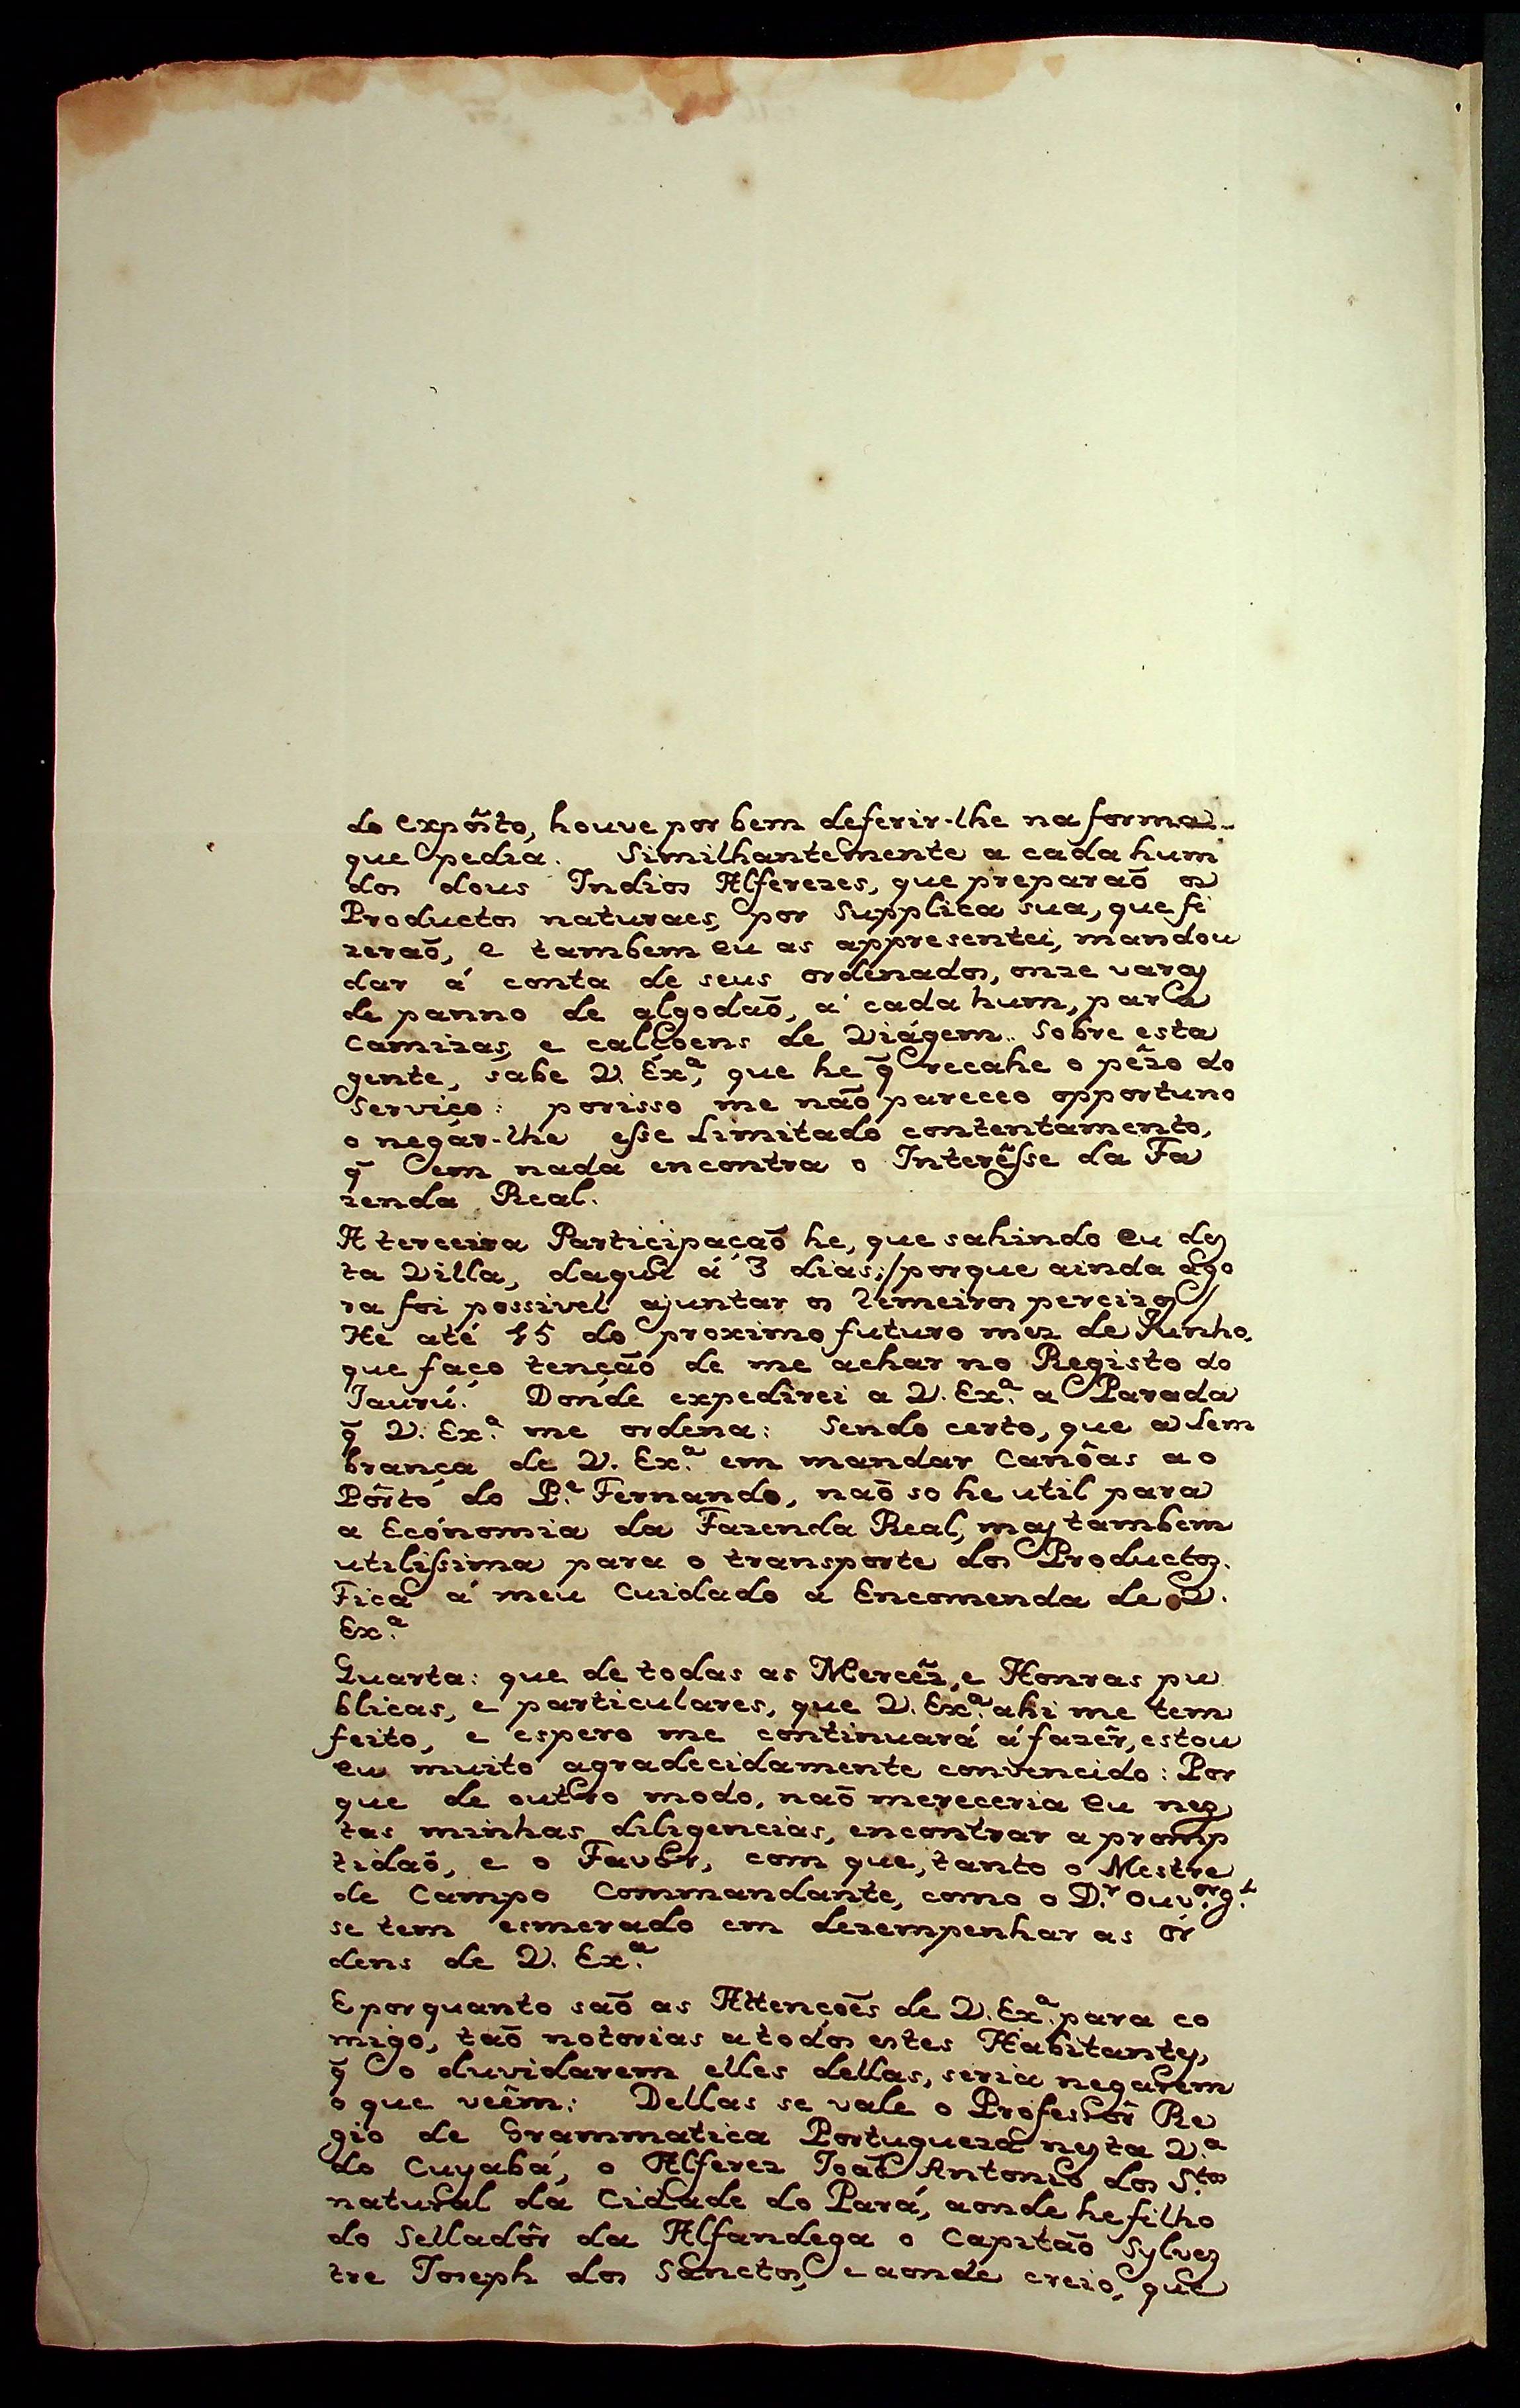 do expôsto, houve por bem deferir-lhe na forma
que pedia. Similhantemente a cada hum
dos dous Indios Alferezes, que preparaõ os
Productos naturaes, por Supplica sua, que fi
zeraõ, e tambem eu as appresentei, mandou
dar á conta de seus ordenados, onze varas
de panno de algodaõ, á cada hum, para
Camizas, e calçoens de Viágem. Sobre esta
gente, sabe V. Exª, que he q̃ recahe o pêzo do
Serviço: porisso me naõ pareceo opportuno
o negár-lhe esse Limitado contentamento,
q̃ em nada encontra o Interêsse da Fa
zenda Real.
A terceira Participaçaõ he, que sahindo eu des
ta Villa, daqui á 3 dias;/porque ainda ago
ra foi possivel ajuntar os remeiros percizos/
He até 15 do proximo futuro mez de Junho,
que faço tençaõ de me achar no Registo do
Jaurú. Donde expedirei a V. Exª a Parada
q̃ V. Exª me ordena: Sendo certo, que a Lem
brança de V. Exª em mandar Canôas ao
Pôrto do Pᵉ Fernando, naõ so he util para
a Ecónomia da Fazenda Real, mas tambem
utilissima para o transporte dos Productos.
Fica á meu Cuidado a Encomenda de V.
Exª
Quarta: que de todas as Mercês, e Honras pu
blicas, e particulares, que V. Exª ahi me tem
feito, e espero me continuará á fazêr, estou
eu muito agradecidamente convencido: Por
que de outro modo, naõ mereceria eu nes
tas minhas diligencias, encontrar a promp
tidaõ, e o Favôr, com que, tanto o Mestre
de Campo Commandante, como o D.ʳ Ouv.ᵒʳ g.ˡ
se tem esmerado em dezempenhar as Or
dens de V. Exª
E porquanto saõ as Attençoẽs de V. Exª para co
migo, taõ notorias a todos estes Habitantes,
q̃ o duvidarem elles dellas, seria negarem
o que veêm: Dellas se vale o Professôr Re
gio de Grammatica Portugueza nesta V.ª
do Cuyabá, o Alferez Joaõ Antonio dos S.ᵗᵒˢ
natural da Cidade do Pará, aonde he filho
do Selladôr da Alfandega o Capitaõ Sylves
tre Joseph dos Sanctos, e aonde creio, que